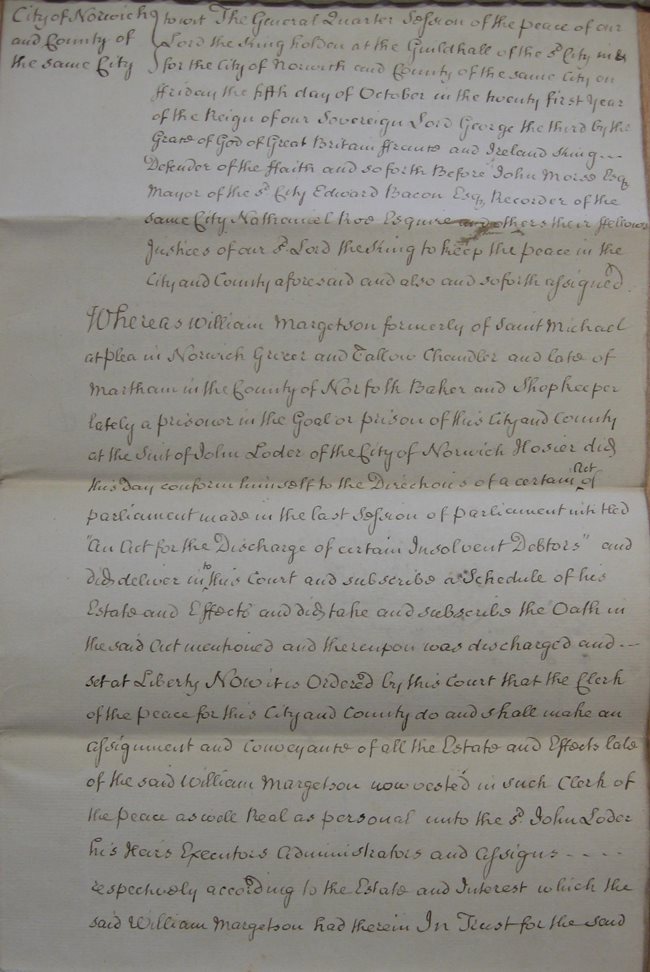 City of Norwich
and County of
the same City
towit The General Quarter Session of the peace of our
Lord the King holden at the Guildhall of the sd. City in &
for the City of Norwich and County of the same City on
ffriday the fifth day of October in the twenty first Year
of the Reign of our Sovereign Lord George the third by the
Grace of God of Great Britain ffrance and Ireland King
Defender of the ffaith and soforth Before John Morse Esqr.
Mayor of the sd. City Edward Bacon Esqr. Recorder of the
same City Nathaniel Roe Esquire and others their ffellows
Justices of our sd. Lord the King to keep the Peace in the
City and County aforesaid and also and soforth assigned.
Whereas William Margetson formerly of Saint Michael
at plea in Norwich Grocer and Tallow Chandler and late of
Martham in the County of Norfolk Baker and Shopkeeper
lately a prisoner in the Goal or prison of this City and County
at the Suit of John Loder of the City of Norwich Hosier did
this Day conform himself to the Directions of a certain Act of
parliament made in the last Session of parliament intitled
"An Act for the Discharge of certain Insolvent Debtors" and
did deliver into this Court and subscribe a Schedule of his
Estate and Effects and did take and subscribe the Oath in
the said Act mentioned and thereupon was discharged and --
set at Liberty Now it is Ordered by this Court that the Clerk
of the peace for this City and County do and shall make an
assignment and Conveyance of all the Estate and Effects late
of the said William Margetson now vested in such Clerk of
the peace as well Real as personal unto the sd. John Loder
his Heirs Executors Administrators and Assigns - - - -
respectively according to the Estate and Interest which the
said William Margetson had therein In Trust for the said